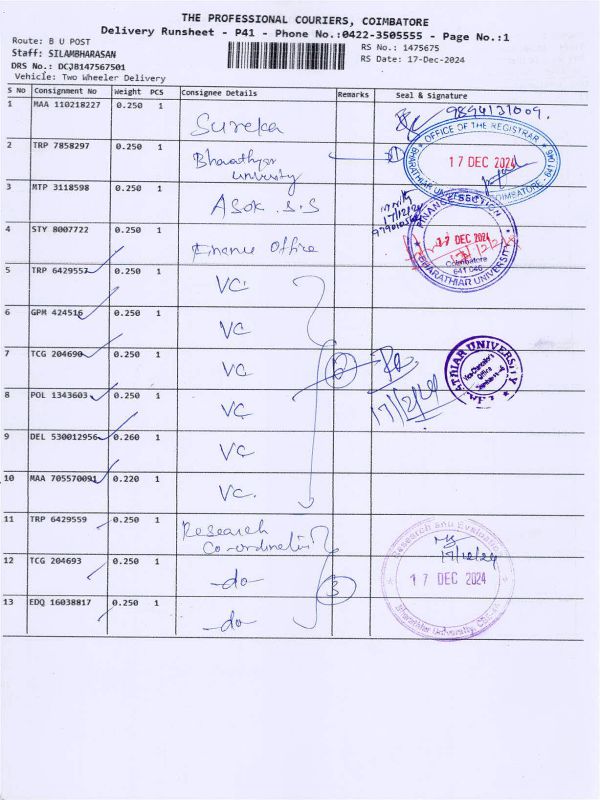 THE PROFESSIONAL COURIERS, COIMBATORE
Delivery Runsheet - P41 - Phone No.:0422-3505555 - Page No.:1
Route: B U POST
Staff: SILAMBHARASAN
DRS No.: DCJ8147567501
Vehicle: Two Wheeler Delivery
RS No.: 1475675
RS Date: 17-Dec-2024
S No Consignment No Weight PCS Consignee Details Remarks Seal & Signature
1 MAA 110218227 0.250 1 Sureka 9894131009.
2 TRP 7858297 0.250 1 Bharathyar
university
1
OFFICE OF THE REGISTRAR
17 DEC 2024
BHARATHIAR UNIVERSITY
COIMBATORE - 641 046
3 MTP 3118598 0.250 1 ASOK .S.S
17/12/24
FINANCE SECTION
17 DEC 2024
Coimbatore
641 046
BHARATHIAR UNIVERSITY
4 STY 8007722 0.250 1 Finance Office
5 TRP 6429557 0.250 1 VC.
6 GPM 424516 0.250 1 VC
7 TCG 204690 0.250 1 VC
8 POL 1343603 0.250 1 VC
17/12/24
9 DEL 530012956 0.260 1 VC
10 MAA 705570091 0.220 1 VC.
11 TRP 6429559 0.250 1 Research
Co-ordinator
12 TCG 204693 0.250 1 -do-
3
13 EDQ 16038817 0.250 1 -do-
ATHIAR UNIVERSITY
Vice-Chancellor's
Office
Research and Evaluation
17/12/24
17 DEC 2024
Bharathiar University, Cbe-46